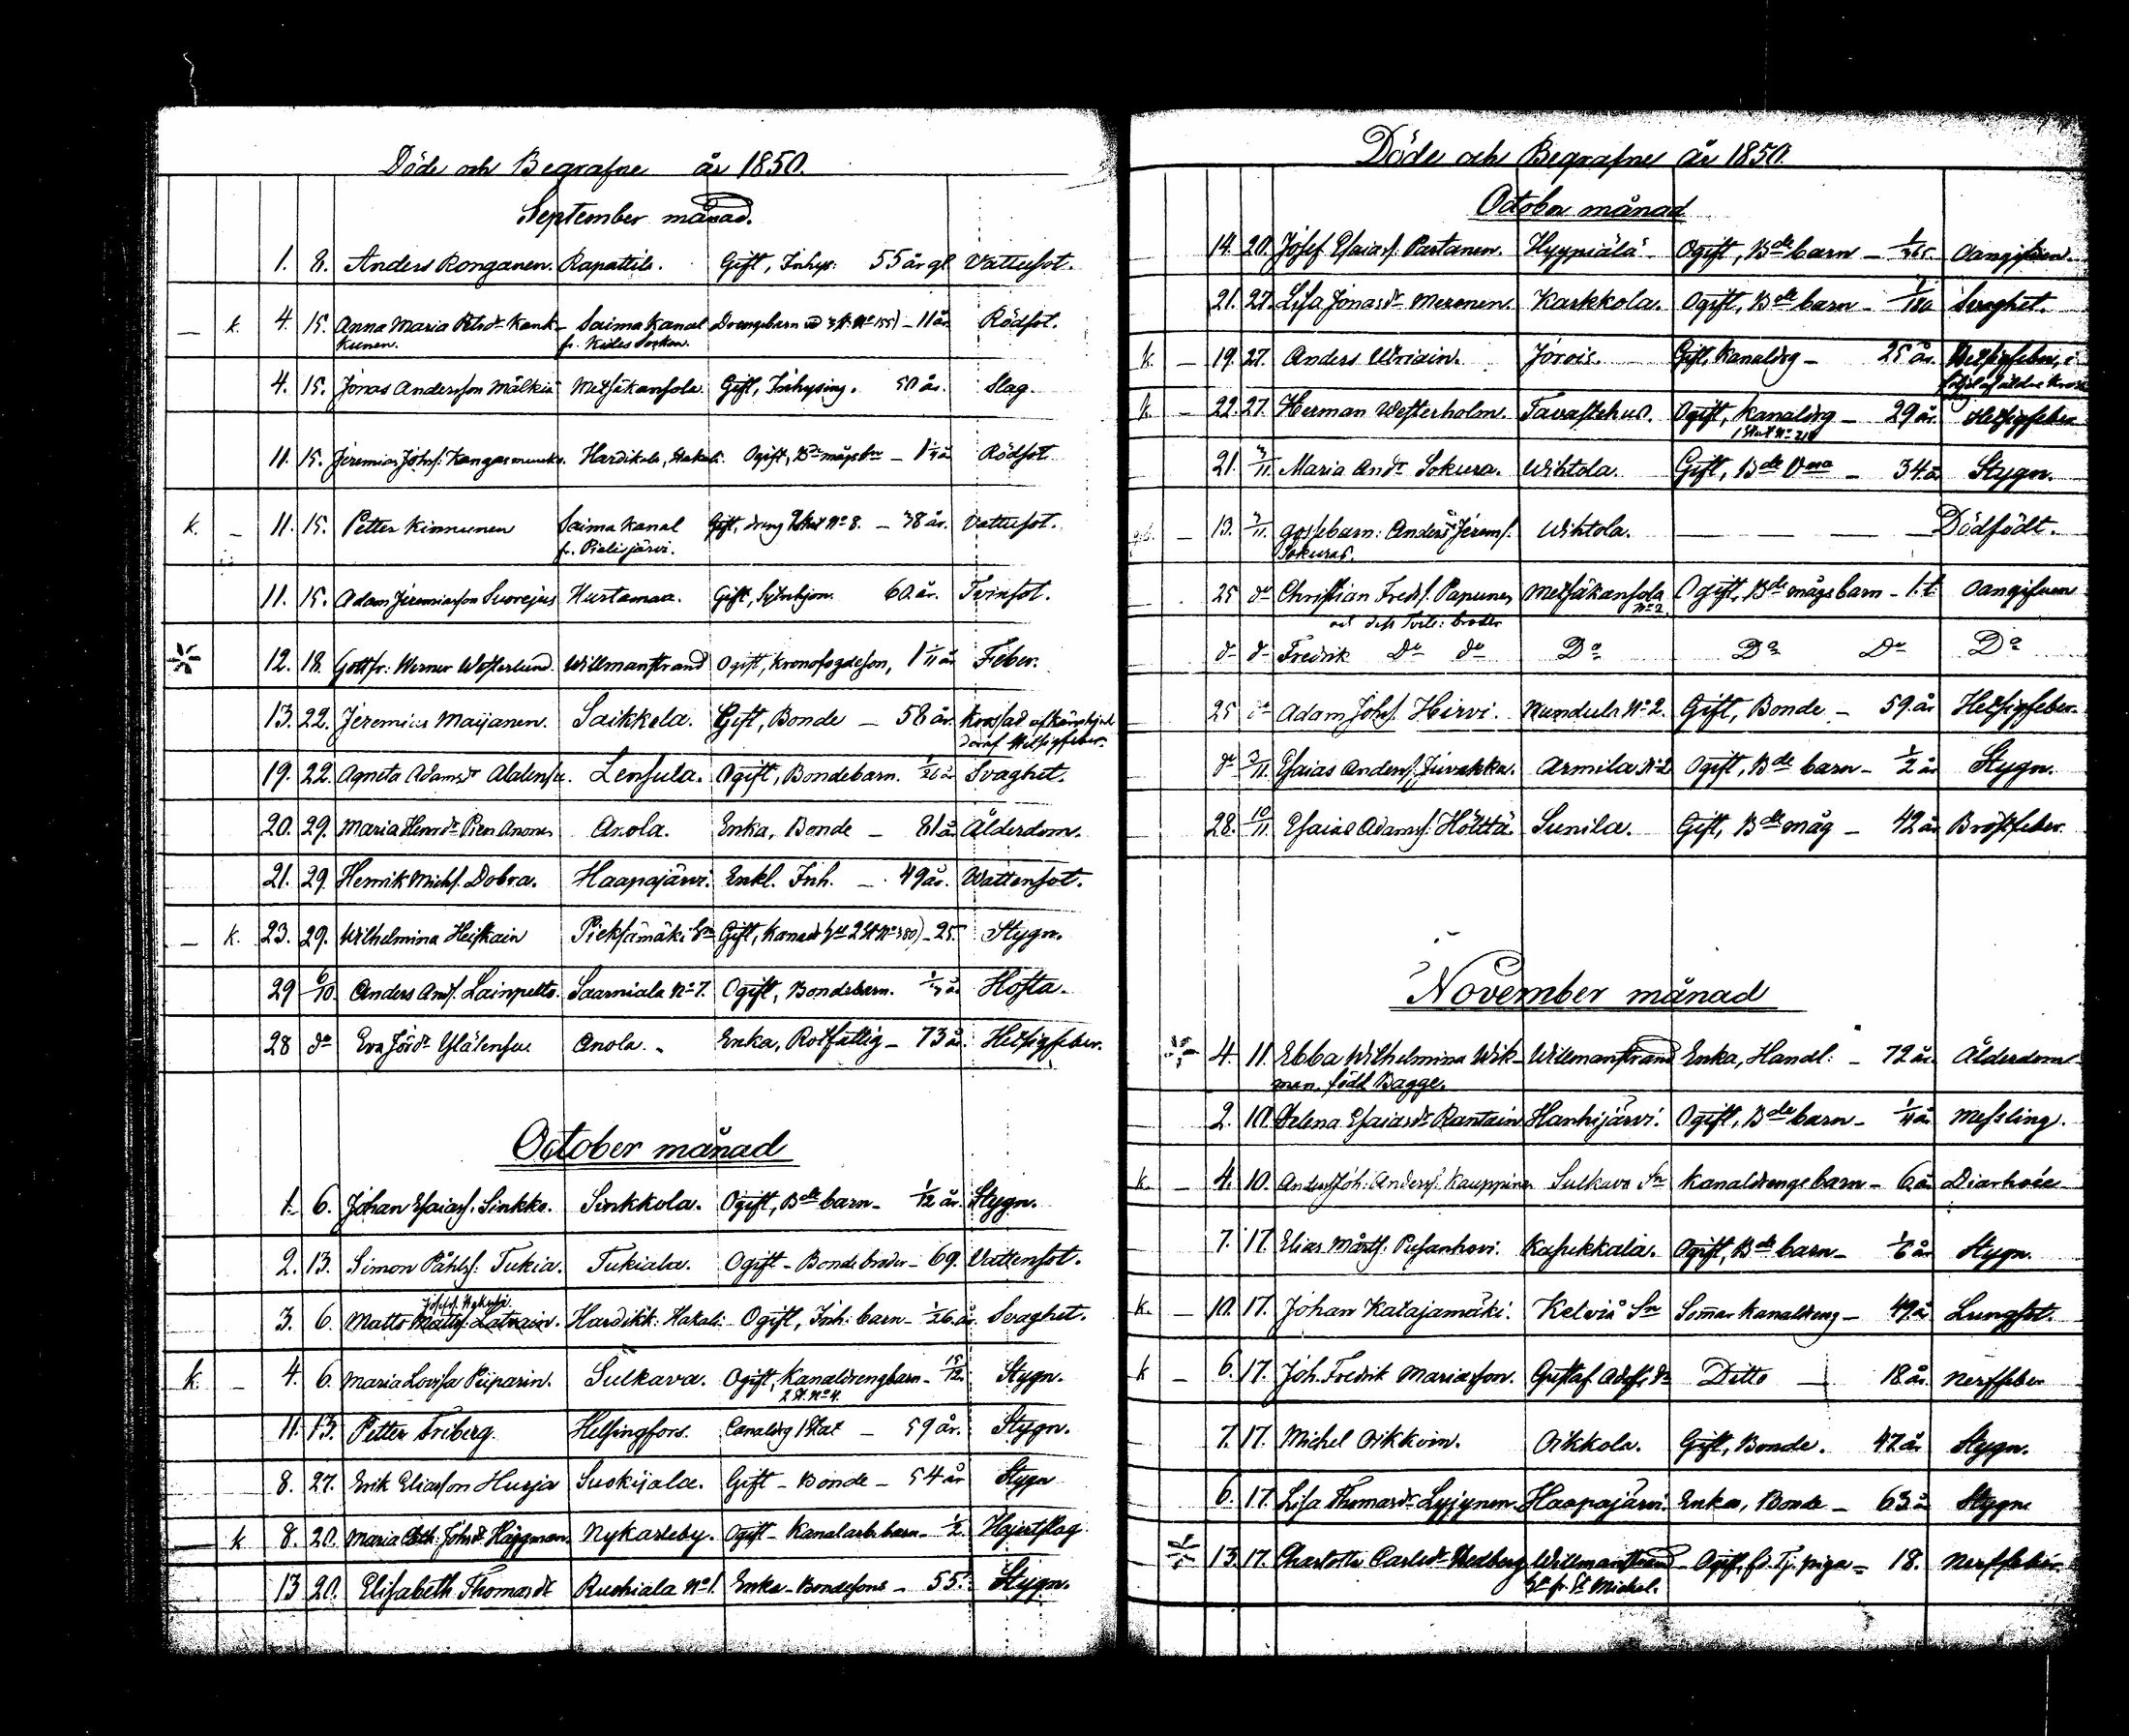 Döde och Begrafne år 1850.
September månad.
1. 8. Anders Ronganen. Rapattila. Gift, Inhys: 55 år gl Vattusot.
— k. 4. 15. Anna Maria Petrsdr Kank- Saima Kanal Drengsbarn vid 3 St. No 155) — 11 år Rödsot.
kunen. fr. Kides Socken.
4. 15. Jonas Andersson Mälkiä Metsäkansola Gift, Inhysing. 50 år. Slag.
11. 15. Jeremias Johs. Kangasmunks. Hardikola, Hakali Ogift, Bde mågsbn — 1 1/4 år Rödsot
k. — 11. 15. Petter Kinnunen Saima Kanal Gift, dreng No 8. — 38 år. Vattusot.
fr. Pielisjärvi.
11. 15. Adam Jeremiasson Suorejus Hurtamaa. Gift, Sytnhjon. 60 år. Tvinsot.
12. 18. Gottfr: Werner Westerlund. Willmanstrand Ogift, Kronofogdeson, 1 1/11 år Feber.
13. 22. Jeremias Maijanen. Saikkola. Gift, Bonde — 58 år.
19. 22. Agneta Adamsdr Alalensu. Lensula. Ogift, Bondebarn. 1/26 år Svaghet.
20. 29. Maria Henrdr Anonen Anola. Enka, Bonde — 81 år Ålderdom.
21. 29. Henrik Michs. Dobra. Haapajärvi. Enkl. Inh. — 49 år. Wattensot.
— k. 23. 29. Wilhelmina Heiskain Pieksämäki Sn Gift, 2 St No 380) — 25. Stygn.
29 6/10 Anders Ands. Lainpelto. Saarniala No 7. Ogift, Bondebarn. Hosta.
28 do Eva Ylälensu Anola. Enka, Rotfattig — 73 år. Hetsigfeber.
October månad
1. 6. Johan Esaiass. Sinkko. Sinkkola. Ogift, Bde barn — 1/12 år. Stygn.
2. 13. Simon Påhls: Tukia. Tukiala. Ogift — Bondebroder — 69. Vattensot.
Josefs.
3. 6. Matts Matts. Latvain. Hardikk: Hakali Ogift, Inh: barn — 1/26 år. Svaghet.
k. — 4. 6. Maria Lovisa Piiparin. Sulkava. Ogift, Kanaldrengbarn — 15/12. Stygn.
2 St. No 4.
11. 13. Petter Friberg. Helsingfors. Canaldrg 1 Stat — 59 år. Stygn.
8. 27. Erik Eliasson Hurja Suokijala. Gift — Bonde — 54 år Stygn
— k 8. 20. Maria Cath: Johsdr Häggman. Nykarleby. Ogift — Kanalarb. barn — 1/2. Hjertslag.
13 20. Elisabeth Thomasdr Ruohiala No 1. Enka — Bondesons — 55. Stygn.
Döde och Begrafne år 1850.
October månad
14. 20. Josef Esaias. Partanen. Hyypiälä Ogift, Bde barn — 1/365. Oangifven.
21. 27. Lisa Jonasdr Meronen. Karkkola. Ogift, Bde barn — Svaghet.
k — 19. 27. Anders Uriain. Jorois. Gift, Kanaldrg — 25 år. Hetsigfeber, i
följd af
k. — 22. 27. Herman Westerholm. Tavastehus. Ogift, Kanaldrg — 29 år. Hetsigfeber
1 Stat No 210
21. 3/11. Maria Andr Sokura. Wihtola. Gift, Bde — 34 år Stygn.
— 13. 3/11. gossebarn: Anders Jerems. Wihtola. — — — — Dödfödt.
Sokuras.
25 do Christian Freds. Papunen Metsäkansola Ogift, Bde mågsbarn — 1. t. Oangifven
No 2.
och dess tvill: broder
do do Fredrik Do do Do Do Do Do
25 do Adam Johs. Hirvi. Mundula No 2. Gift, Bonde — 59 år Hetsigfeber.
do 3/11. Esaias Anders. Juvakka. Armila No 2 Ogift, Bde barn — 1/2 år Stygn.
28. 10/11 Esaias Adamss. Hölttä Sunila. Gift, Bde måg — 42 år Bröstfeber.
November månad
4. 11. Ebba Wilhelmina Wik- Willmanstrand Enka, Handl: — 72 år. Ålderdom
man. född Bagge.
2. 10. Helena Esaiasdr Rantain Hanhijärvi. Ogift, Bde barn — Messling.
k. — 4. 10. Anders Joh: Anderss. Kauppinen Sulkava Sn Kanaldrengsbarn — 6 år Diarhoée
7. 17. Elias Mårts. Pusankovi. Kasukkala. Ogift, Bde barn — 1/6 år Stygn.
k. — 10. 17. Johan Katajamäki. Kelviå Sn Somar Kanaldreng — 49 år Lungsot.
k — 6. 17. Joh. Fredrik Mariasson. Gustaf Adolfs do Ditto — 18 år. Nerffeber
7. 17. Michel Oikkoin. Oikkola. Gift, Bonde. 47 år Stygn.
6. 17. Lisa Thomasdr Lyijynen. Haapajärvi. Enka, Bonde — 63 år Stygn
13. 17. Charlotta Carlsdr Hedberg Willmanstrand Ogift, piga — 18. Nerffeber.
fr. St Michel.